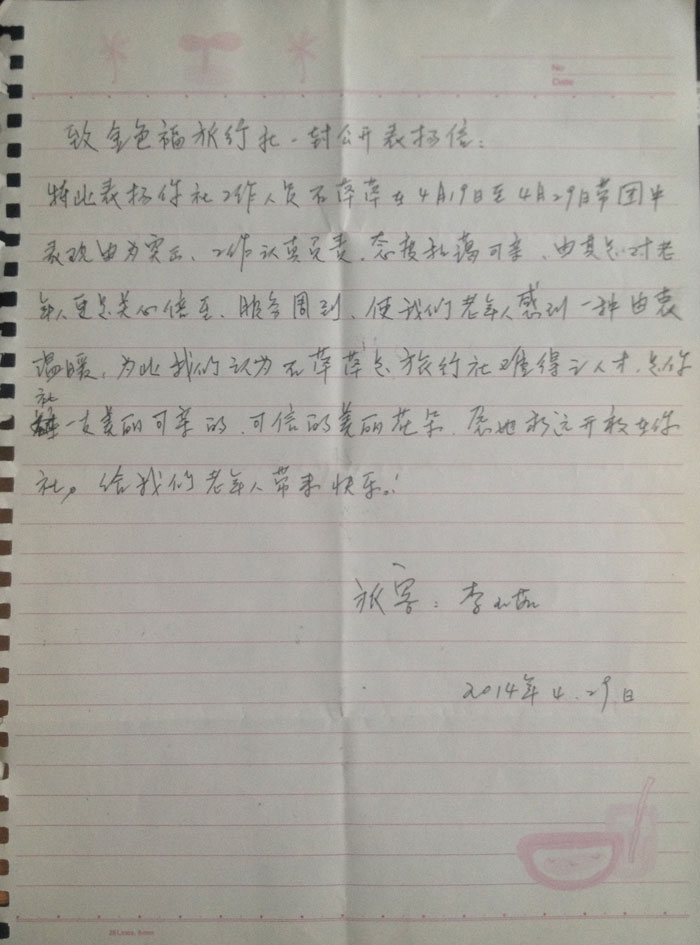 No
Date
致金色福旅行社一封公开表扬信:
特此表扬你社工作人员石萍萍在4月19日至4月29日带团中
表现由为突出、工作认真负责、态度和蔼可亲、由其是对老
年人更是关心倍至、服务周到、使我们老年人感到一种由衷
温暖,为此我们认为石萍萍是旅行社难得之人才,是你
社一支美丽可亲的、可信的美丽花朵、愿她永远开放在你
社,给我们老年人带来快乐!
旅客:李
2014年4.29日